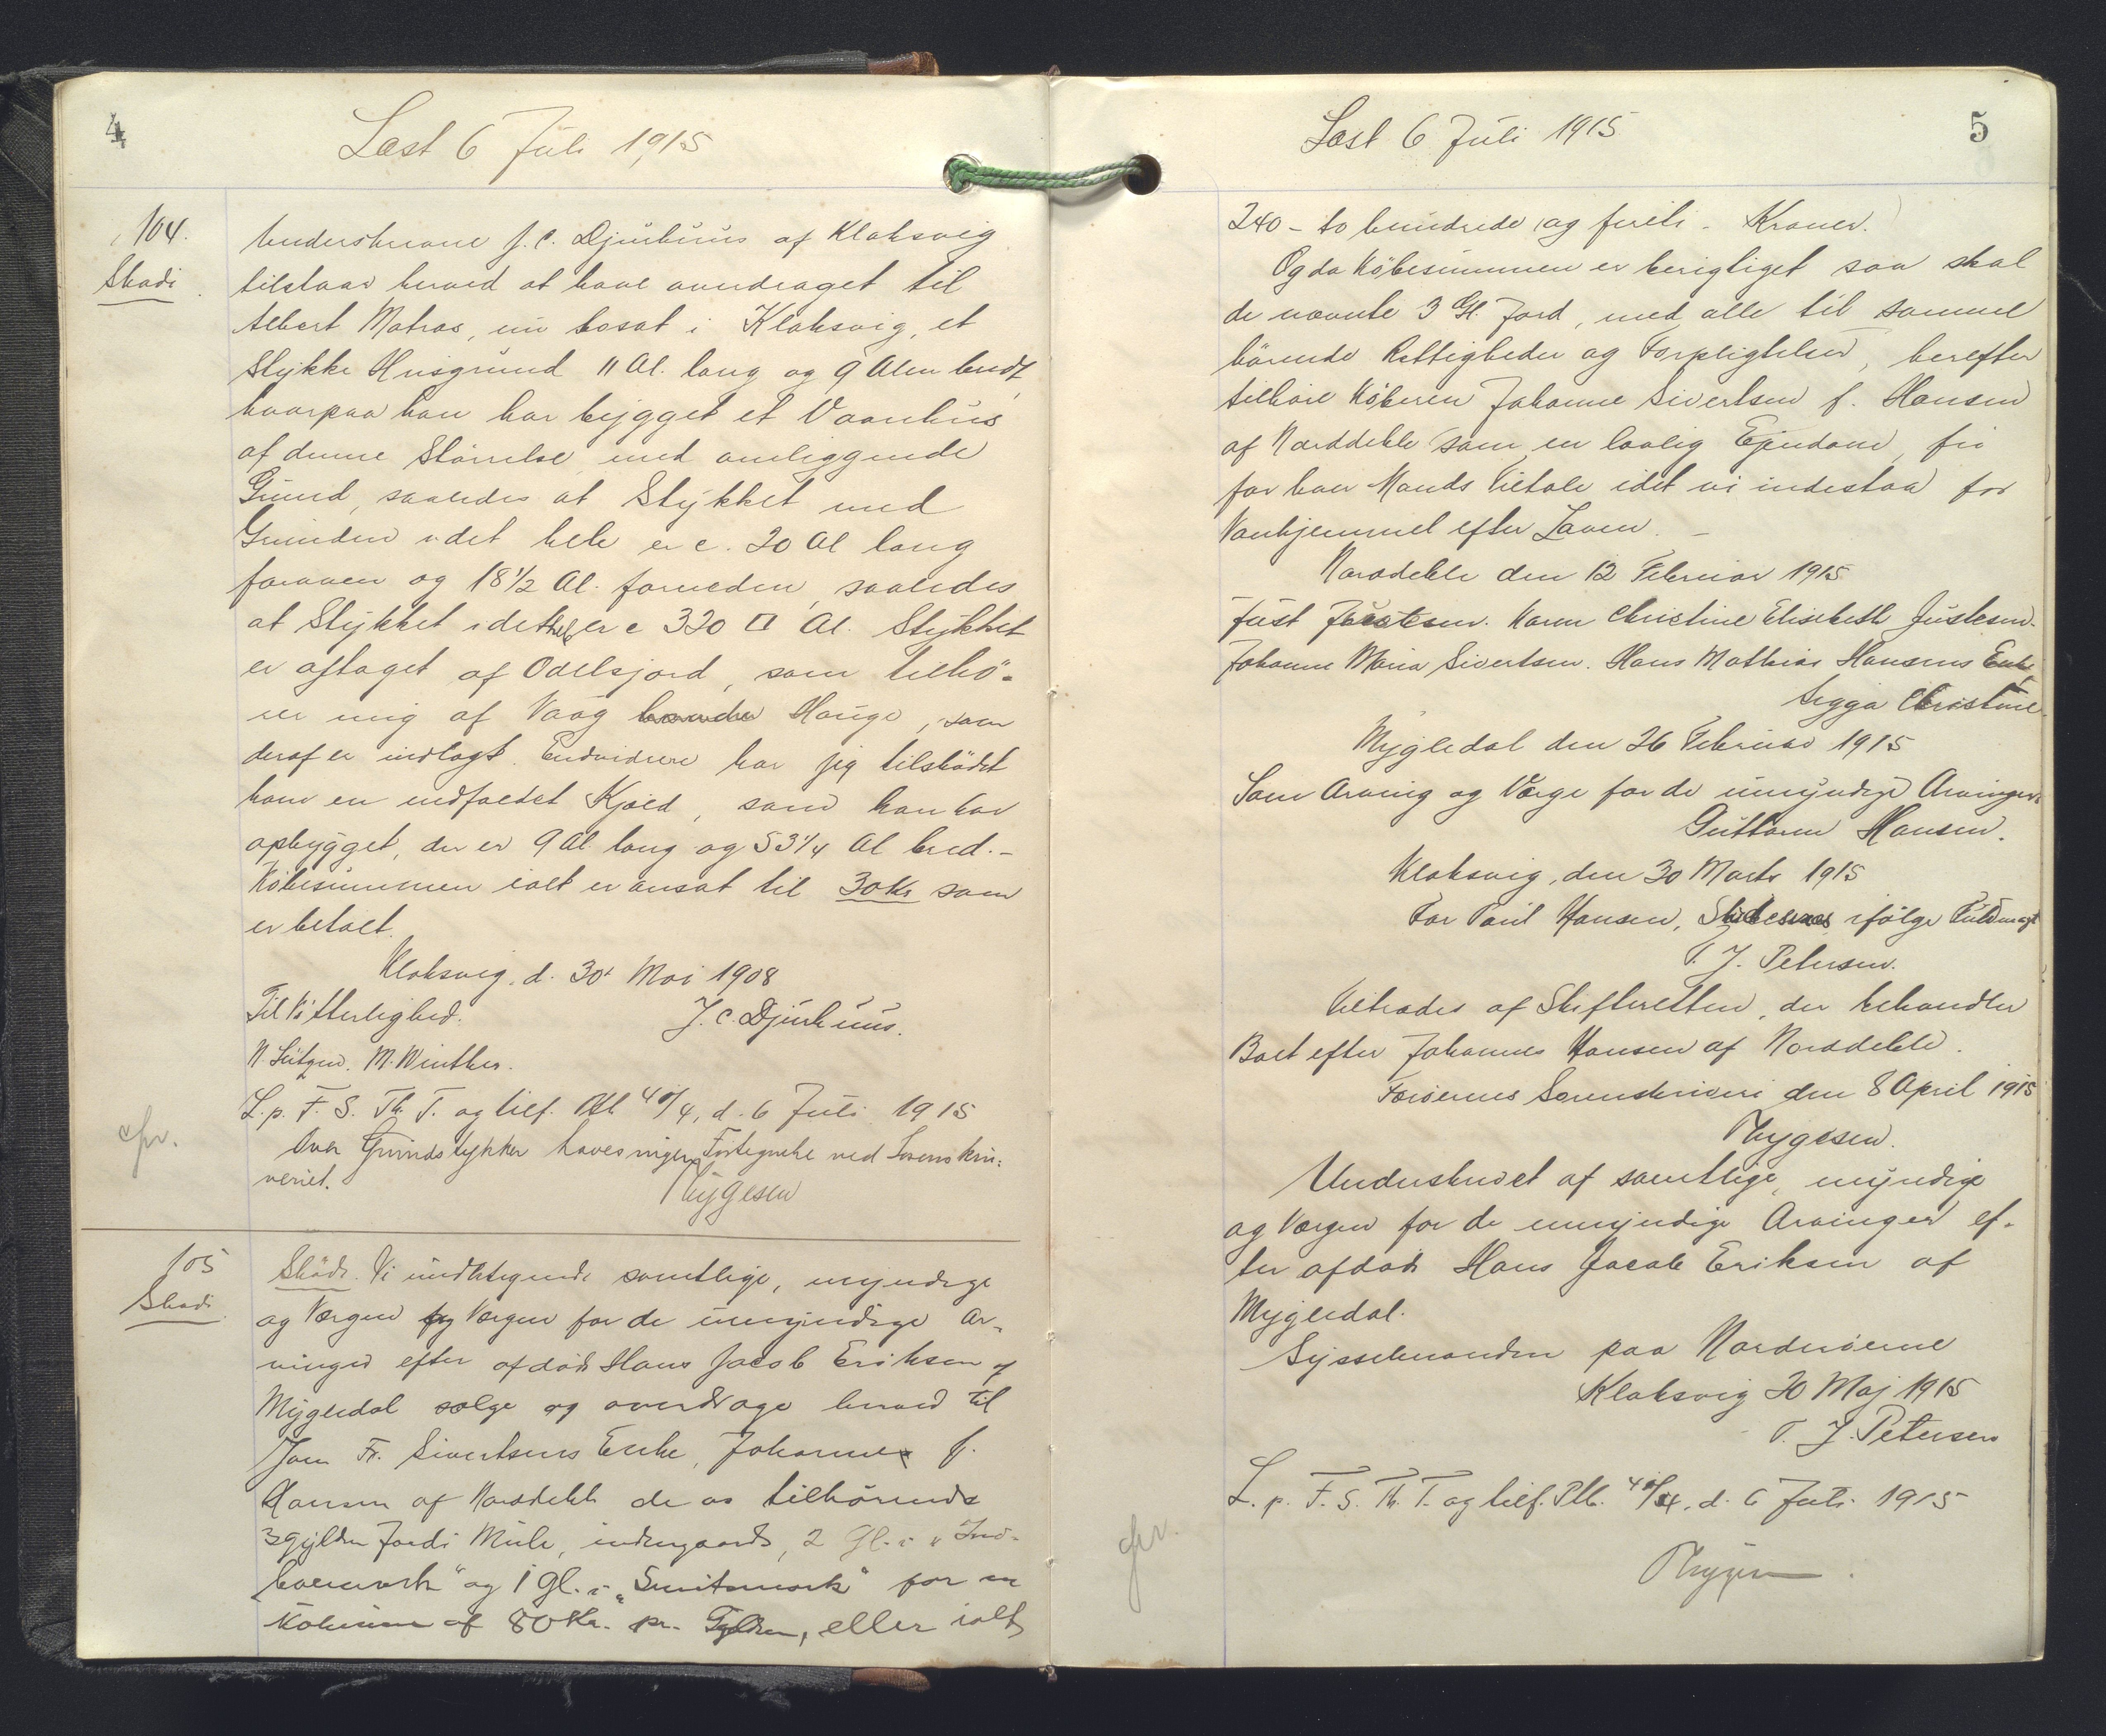 4
Læst 6 Juli 1915
104.
Skøde
Underskrevne J. C. Djurhuus af Klaksvig
tilstaar herved at have overdraget til
Albert Matras, nu bosat i Klaksvig, et
Stykke Husgrund 11 Al. lang og 9 Alen bredt,
hvorpaa han har bygget et Vaanhus
af denne Størrelse med omliggende
Grund, saaledes at Stykket med
Grunden i det hele er c. 20 Al lang
foroven og 18 1/2 Al. forneden, saaledes
at Stykket i det hele er c 320 □ Al. Stykket
er aftaget af Odelsjord, som tilhö-
rer mig af Vaag Hauge, som
deraf er indlagt. Endvidere har jeg tilsködet
ham en indfældet Kjæld, som han har
opbygget, der er 9 Al. lang og 5 3 1/4 Al bred. -
Köbesummen ialt er ansat til 30 Kr som
er betalt.
Klaksvig, d. 30t Mai 1908
Til Vitterlighed. J. C. Djurhuus.
N. Lützen. M. Winther.
L. p. F. S. Th. T. og tilf. Ptl 40/4, d. 6 Juli 1915
Over Grundstykker haves ingen Fortegnelse ved Sorenskri-
veriet.
Thygesen
105
Skøde
Sköde. Vi undertegnede samtlige, myndige
og Værgen og Værgen for de umyndige Ar-
vinger efter afdøde Hans Jacob Eriksen af
Mygledal sælge og overdrage herved til
Joen Fr. Sivertsens Enke, Johanne f.
Hansen af Norddeble de os tilhörende
3 Gylden Jord i Mule, indengaards, 2 Gl. i "Ind-
" og 1 Gl. i "Smitsmork" for en
Købesum af 80 Kr. pr. Gylden, eller ialt
5
Læst 6 Juli 1915
240 - to hundrede og fireti - Kroner.
Og da Köbesummen er berigtiget saa skal
de nævnte 3 Gl. Jord, med alle til samme
hörende Rettigheder og Forpligtelser, herefter
tilhøre Köberen Johanne Sivertsen f. Hansen
af Norddeble som en lovlig Ejendom, fri
for hver Mands Tiltale idet vi indestaa for
Vanhjemmel efter Loven. -
Norddeble den 12 Februar 1915
Just Justesen. Karen Christine Elisebeth Justesen.
Johanne Maria Sivertsen. Hans Mathias Hansens Enke
Sigga Christine
Mygledal den 26 Februar 1915
Som Arving og Værge for de umyndige Arvinger:
Guttorm Hansen.
Klaksvig, den 30 Marts 1915
For Poul Hansen, ifölge Fuldmagt
T. J. Petersen.
Tiltrædes af Skifteretten, der behandler
Boet efter Johannes Hansen af Norddeble.
Færøernes Sorenskriveri den 8 April 1915
Thygesen.
Underskrevet af samtlige, myndige
og Værgen for de umyndige Arvinger ef-
ter afdøde Hans Jacob Eriksen af
Mygledal.
Sysselmanden paa Norderøerne
Klaksvig 20 Maj 1915
T. J. Petersen
L. p. F. S. Th. T. og tilf. Ptl. 40/4, d. 6 Juli 1915
Thygesen.